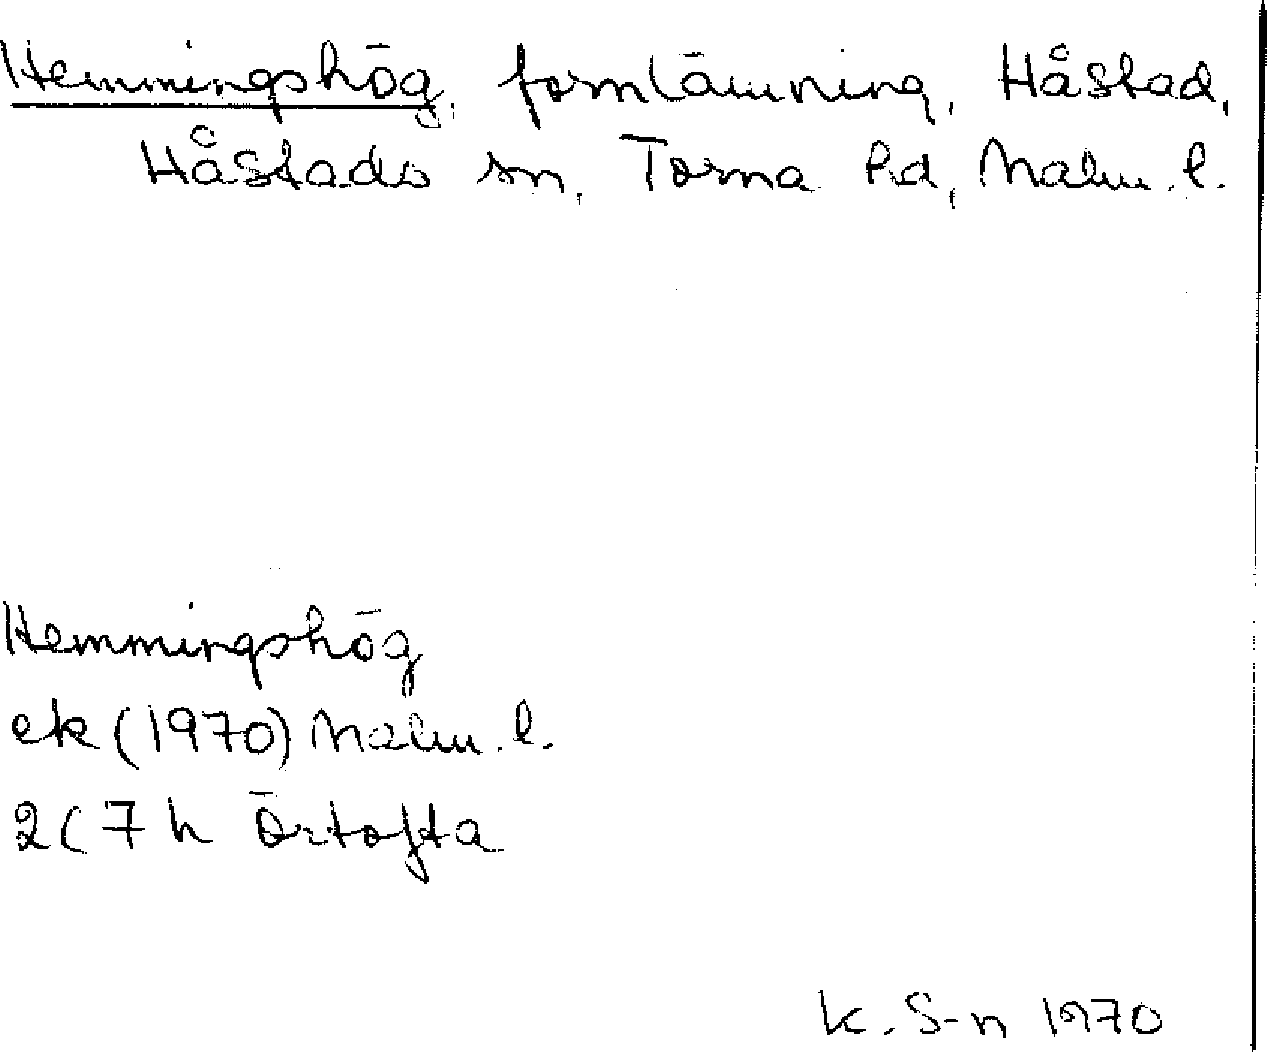 Hemmingshög, fornlämning, Håstad,
Håstads sn, Torna hd, Malm. l.
Hemmingshög
ek (1970) Malm. l.
2C 7h Örtofta
K. S-n 1970